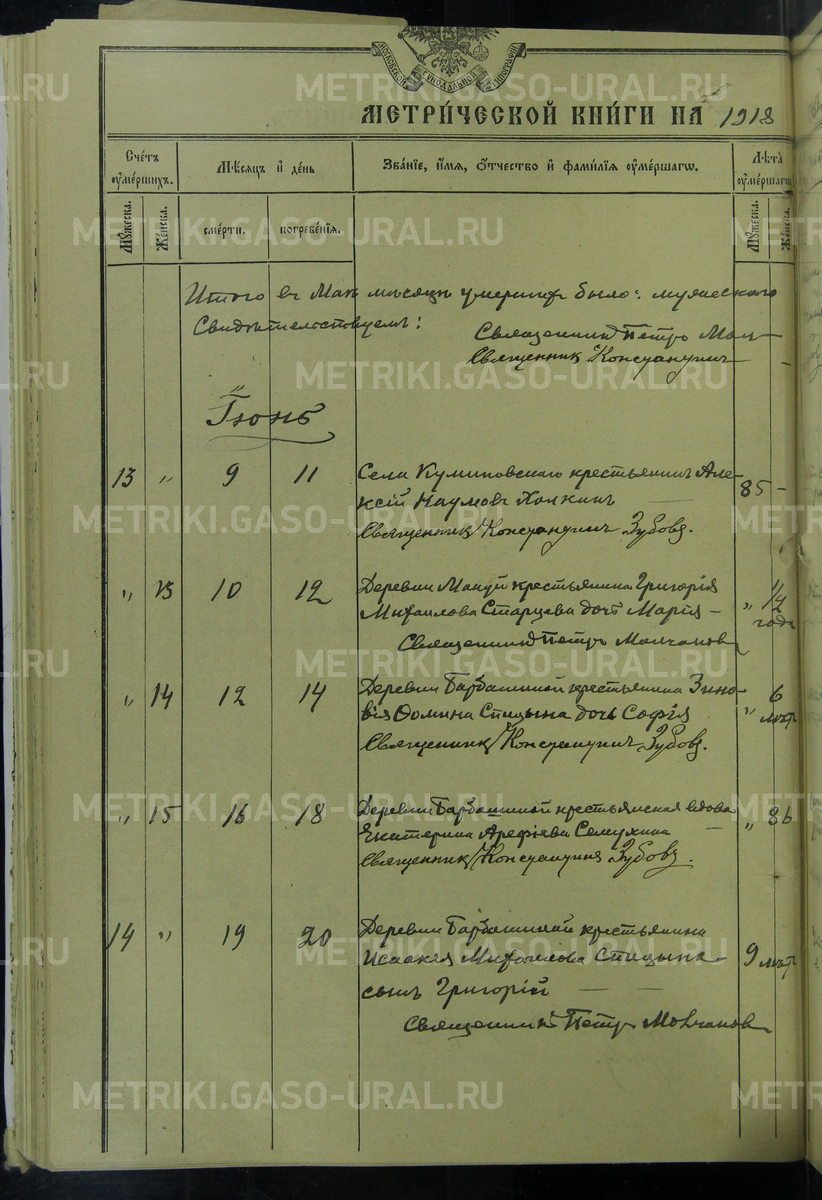 МОСКОВСКОЙ СѴНОДАЛЬНОЙ ТИПОГРАФІИ
МЕТРИ́ЧЕСКОЙ КНИ́ГИ НА 1918
Сче́тъ ᲂу҆ме́ршихъ.
Мѣ́сяцъ и҆ де́нь
Зва́нїе, и҆́мя, ѻ҆́тчество и҆ фами́лїя ᲂу҆ме́ршагѡ.
Лѣ́та ᲂу҆ме́ршагѡ
Мꙋ́жеска. Же́нска. сме́рти. погребе́нїя. Мꙋ́жеска. Же́нска.
Итого въ Маѣ мѣсяцѣ умершихъ было: мужеского
Свидѣтельствуемъ:
Священникъ Петръ Молч
Священник Константинъ
Іюнь
13 " 9 11 Села Кумиповскаго крестьянинъ Але- 85 -
ксѣй Наумовъ Холкинъ
Священникъ Константинъ Зубовъ.
" 13 10 12 Деревни Мануй крестьянина Григорія " 1/2
Михаилова Старцева дочь Марія - года
Священникъ Петръ Молчановъ
" 14 12 14 Деревни Барбашиной крестьянина Зино- " 6
вія Ѳомина Спицына дочь Софія лѣтъ
Священникъ Константинъ Зубовъ.
" 15 16 18 Деревни Барбашиной крестьянская вдова " 86
Екатерина Арефіева Семухина
Священникъ Константинъ Зубовъ.
14 " 19 20 Деревни Барбашиной крестьянина
Исаакія Михаилова Спицына 9 лѣтъ
сынъ Григорій
Священникъ Петръ Молчановъ
METRIKI.GASO-URAL.RU